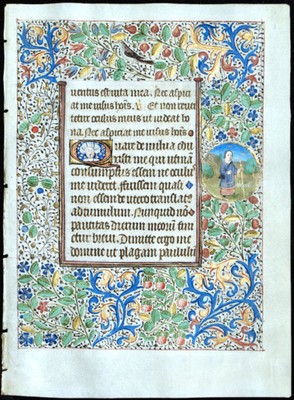 uentus est uita mea. Nec aspici
at me uisus hois. Et non reuer
tetur oculus meus ut uideat bo
na. Nec aspiciat me uisus hois
Quare de uulua edu
xisti me qui utina
consumptus essem ne oculus
me uideret. fuissem quasi
non essem de utero translat
ad tumulum. Nunquid no
paucitas dierum meoru fini
etur breui. Dimitte ergo me
domine ut plagam paulul